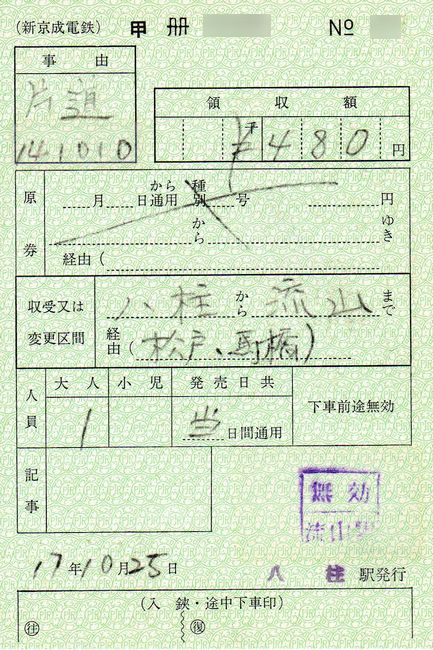 (新京成電鉄) 甲 冊 No
事由
片道
141010
領収額
¥480円
原券
月 日通用 から 種別 号 円
から ゆき
経由(
収受又は変更区間
八柱から流山まで
経由(松戸、馬橋)
人員
大人 小児 発売日共
1 当日間通用
下車前途無効
記事
無効
流山駅
17年10月25日 八柱駅発行
(入鋏・途中下車印)
往 復